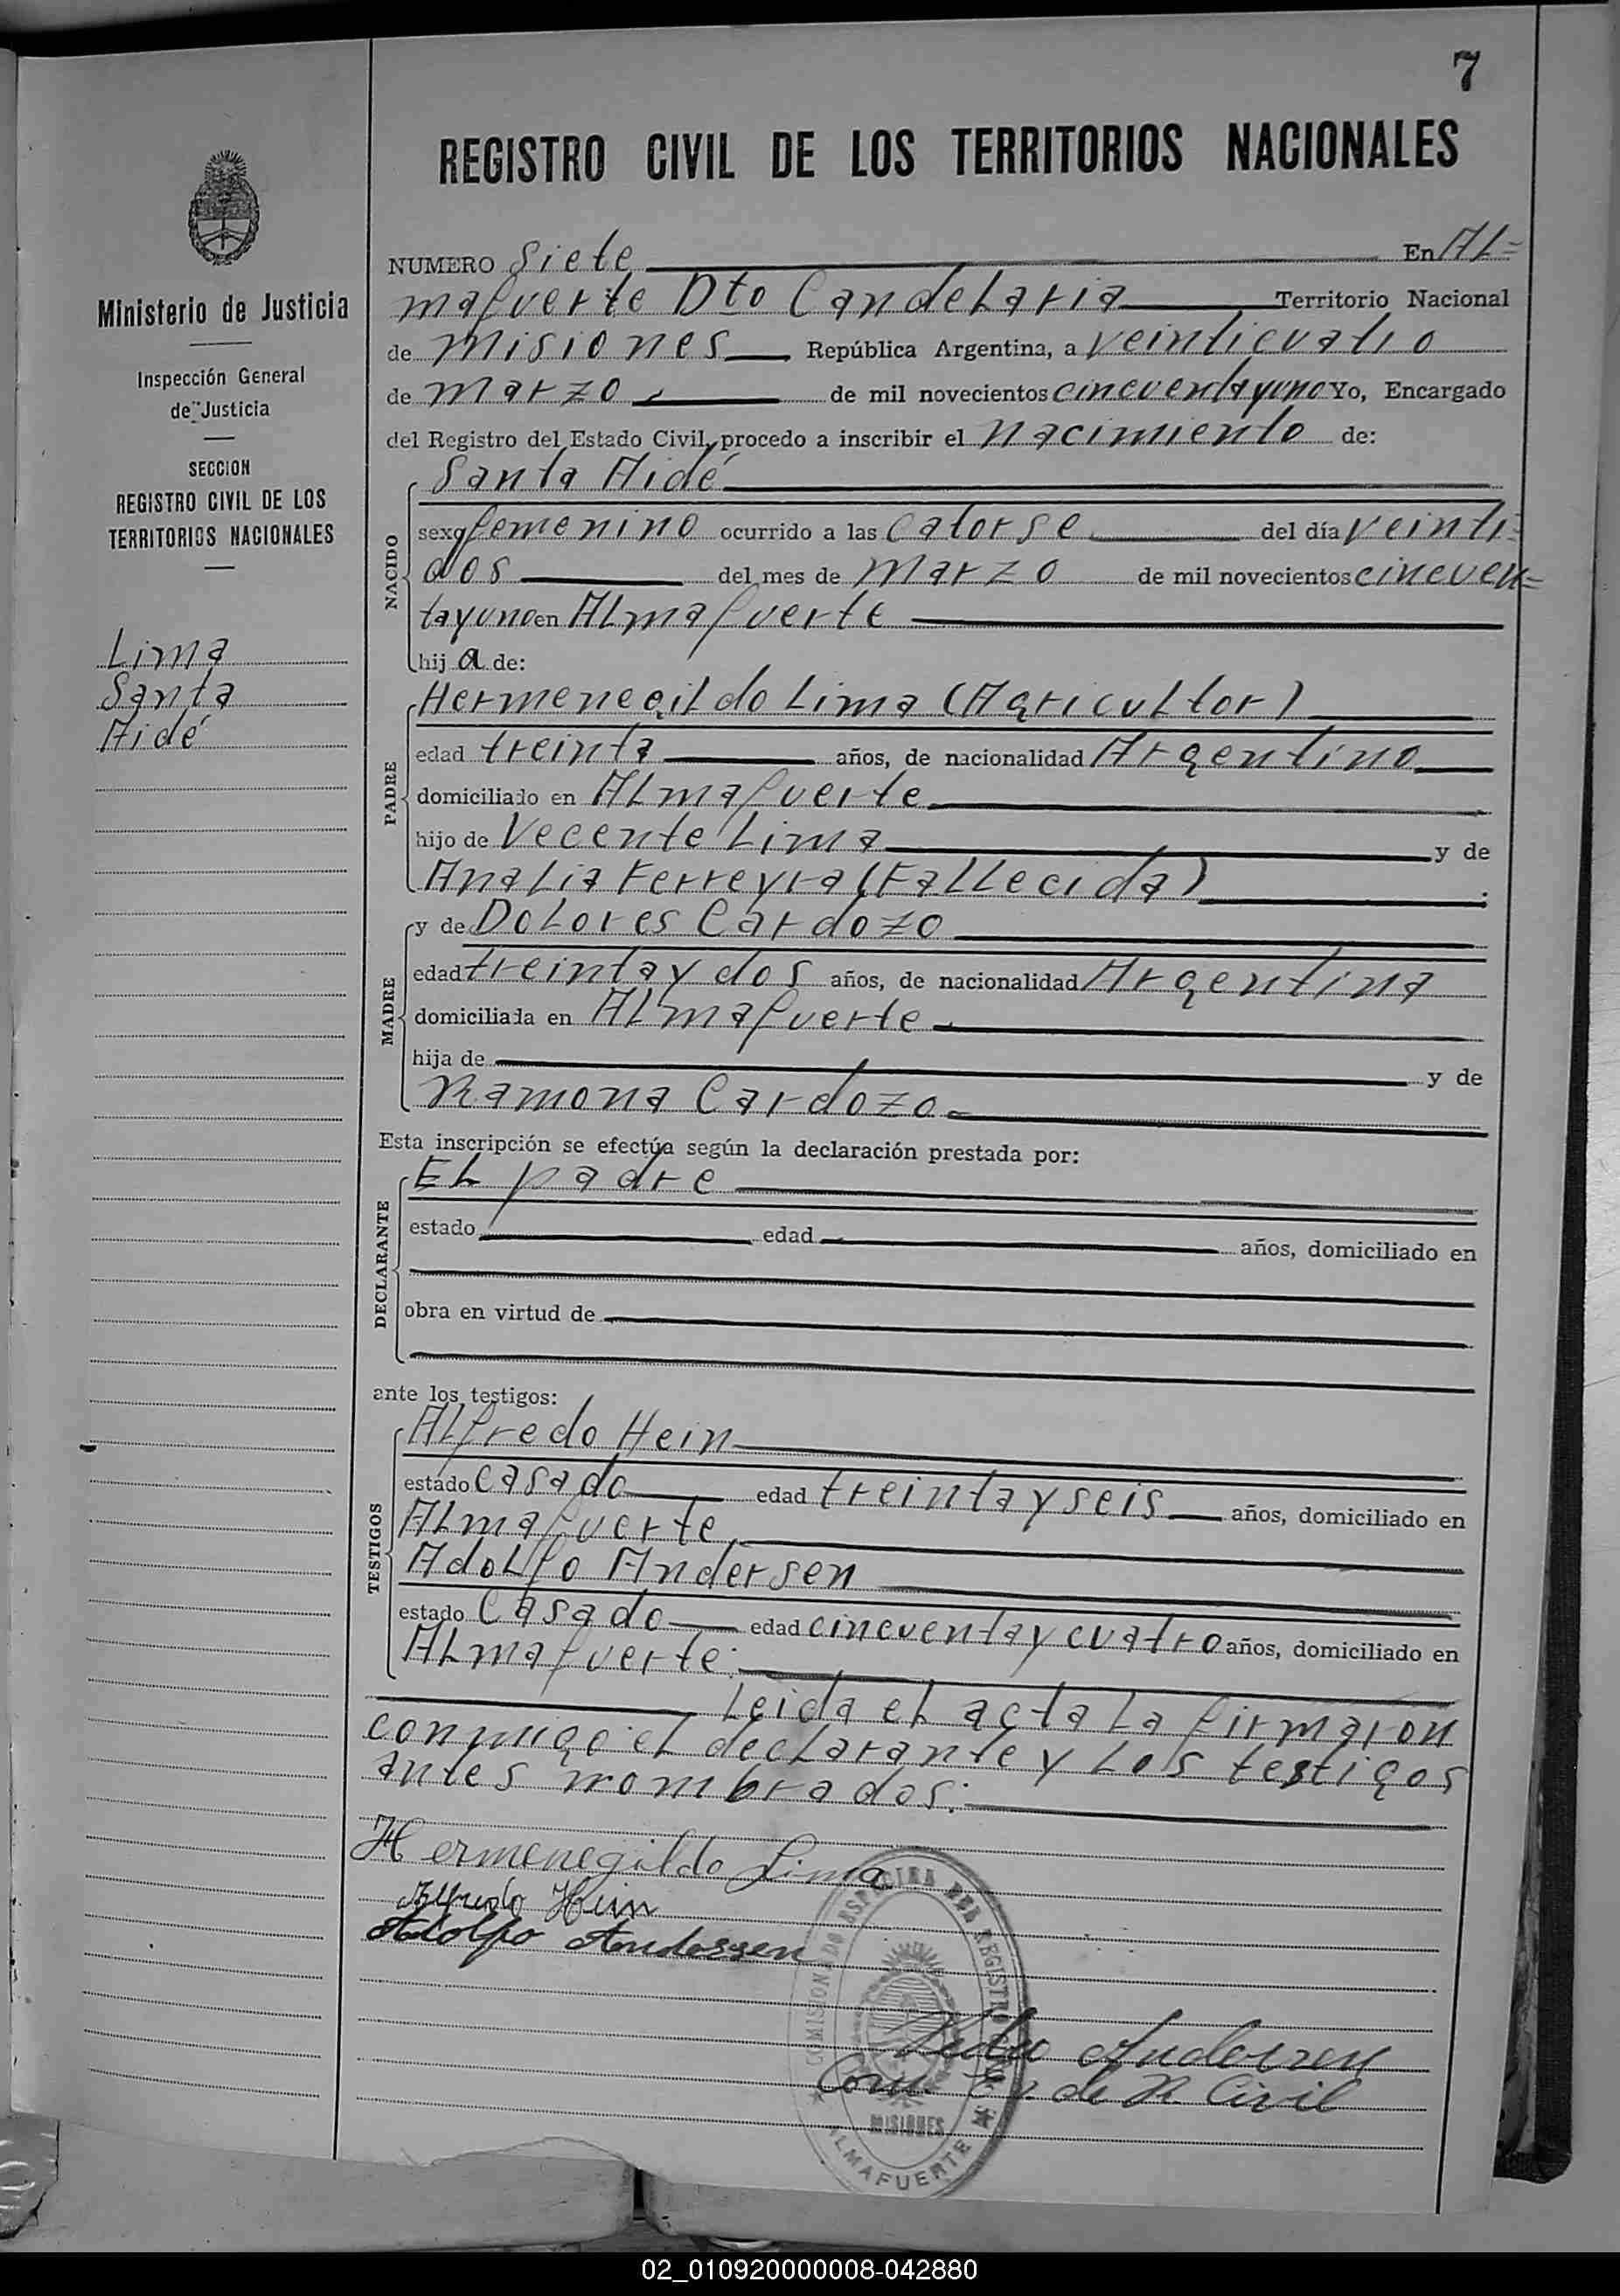 7
REGISTRO CIVIL DE LOS TERRITORIOS NACIONALES
Ministerio de Justicia
Inspección General
de Justicia
SECCION
REGISTRO CIVIL DE LOS
TERRITORIOS NACIONALES
Lima
Santa
Aidé
NUMERO Siete En AL=
mafuerte Dto Candelaria Territorio Nacional
de Misiones República Argentina, a veinticuatro
de marzo de mil novecientos cincuentayuno Yo, Encargado
del Registro del Estado Civil, procedo a inscribir el nacimiento de:
NACIDO
Santa Aidé
sexo femenino ocurrido a las catorse del día veinti=
dos del mes de marzo de mil novecientos cincuen=
tayuno en ALmafuerte
hij a de:
PADRE
Hermenegildo Lima (Agricultor)
edad treinta años, de nacionalidad Argentino
domiciliado en ALmafuerte
hijo de Vecente Lima y de
Analia Ferreyra (Fallecida)
MADRE
y de Dolores Cardozo
edad treintaydos años, de nacionalidad Argentina
domiciliada en ALmafuerte
hija de y de
Ramona Cardozo
Esta inscripción se efectúa según la declaración prestada por:
DECLARANTE
EL padre
estado edad años, domiciliado en
obra en virtud de
ante los testigos:
TESTIGOS
Alfredo Hein
estado casado edad treintayseis años, domiciliado en
ALmafuerte
Adolfo Andersen
estado Casado edad cincuentaycuatro años, domiciliado en
ALmafuerte.
Leida el acta la firmaron
conmigo el declarante y los testigos
antes nombrados:
Hermenegildo Lima
Alfredo Hein
Adolfo Andersen
Andersen
Com. de R. Civil
MISIONES
ALMAFUERTE
02_010920000008-042880